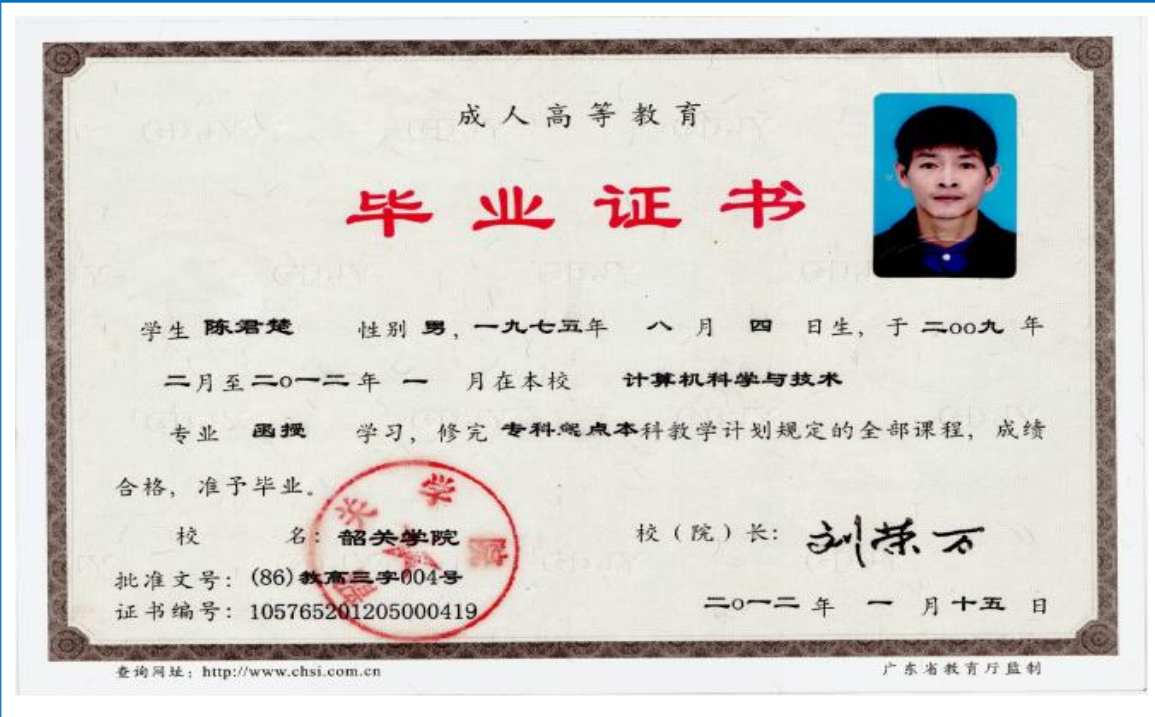 成人高等教育
毕业证书
学生 陈君楚 性别 男，一九七五年 八 月 四 日生，于 二oo九 年
二月至二o一二年 一 月在本校 计算机科学与技术
专业 函授 学习，修完 专科起点本科教学计划规定的全部课程，成绩
合格，准予毕业。
校 名：韶关学院
校（院）长：刘荣万
批准文号：(86)教高三字004号
证书编号：105765201205000419
二o一二年 一 月十五 日
查询网址：http://www.chsi.com.cn
广东省教育厅监制